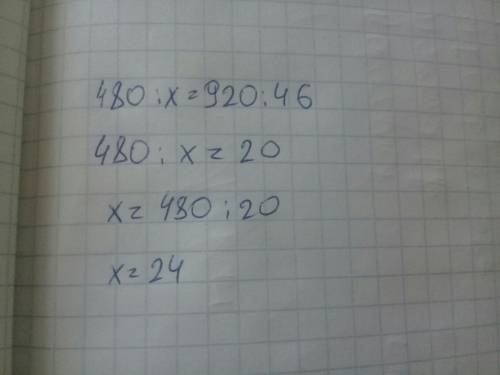 480:x=920:46
480: x = 20
x= 480:20
x=24